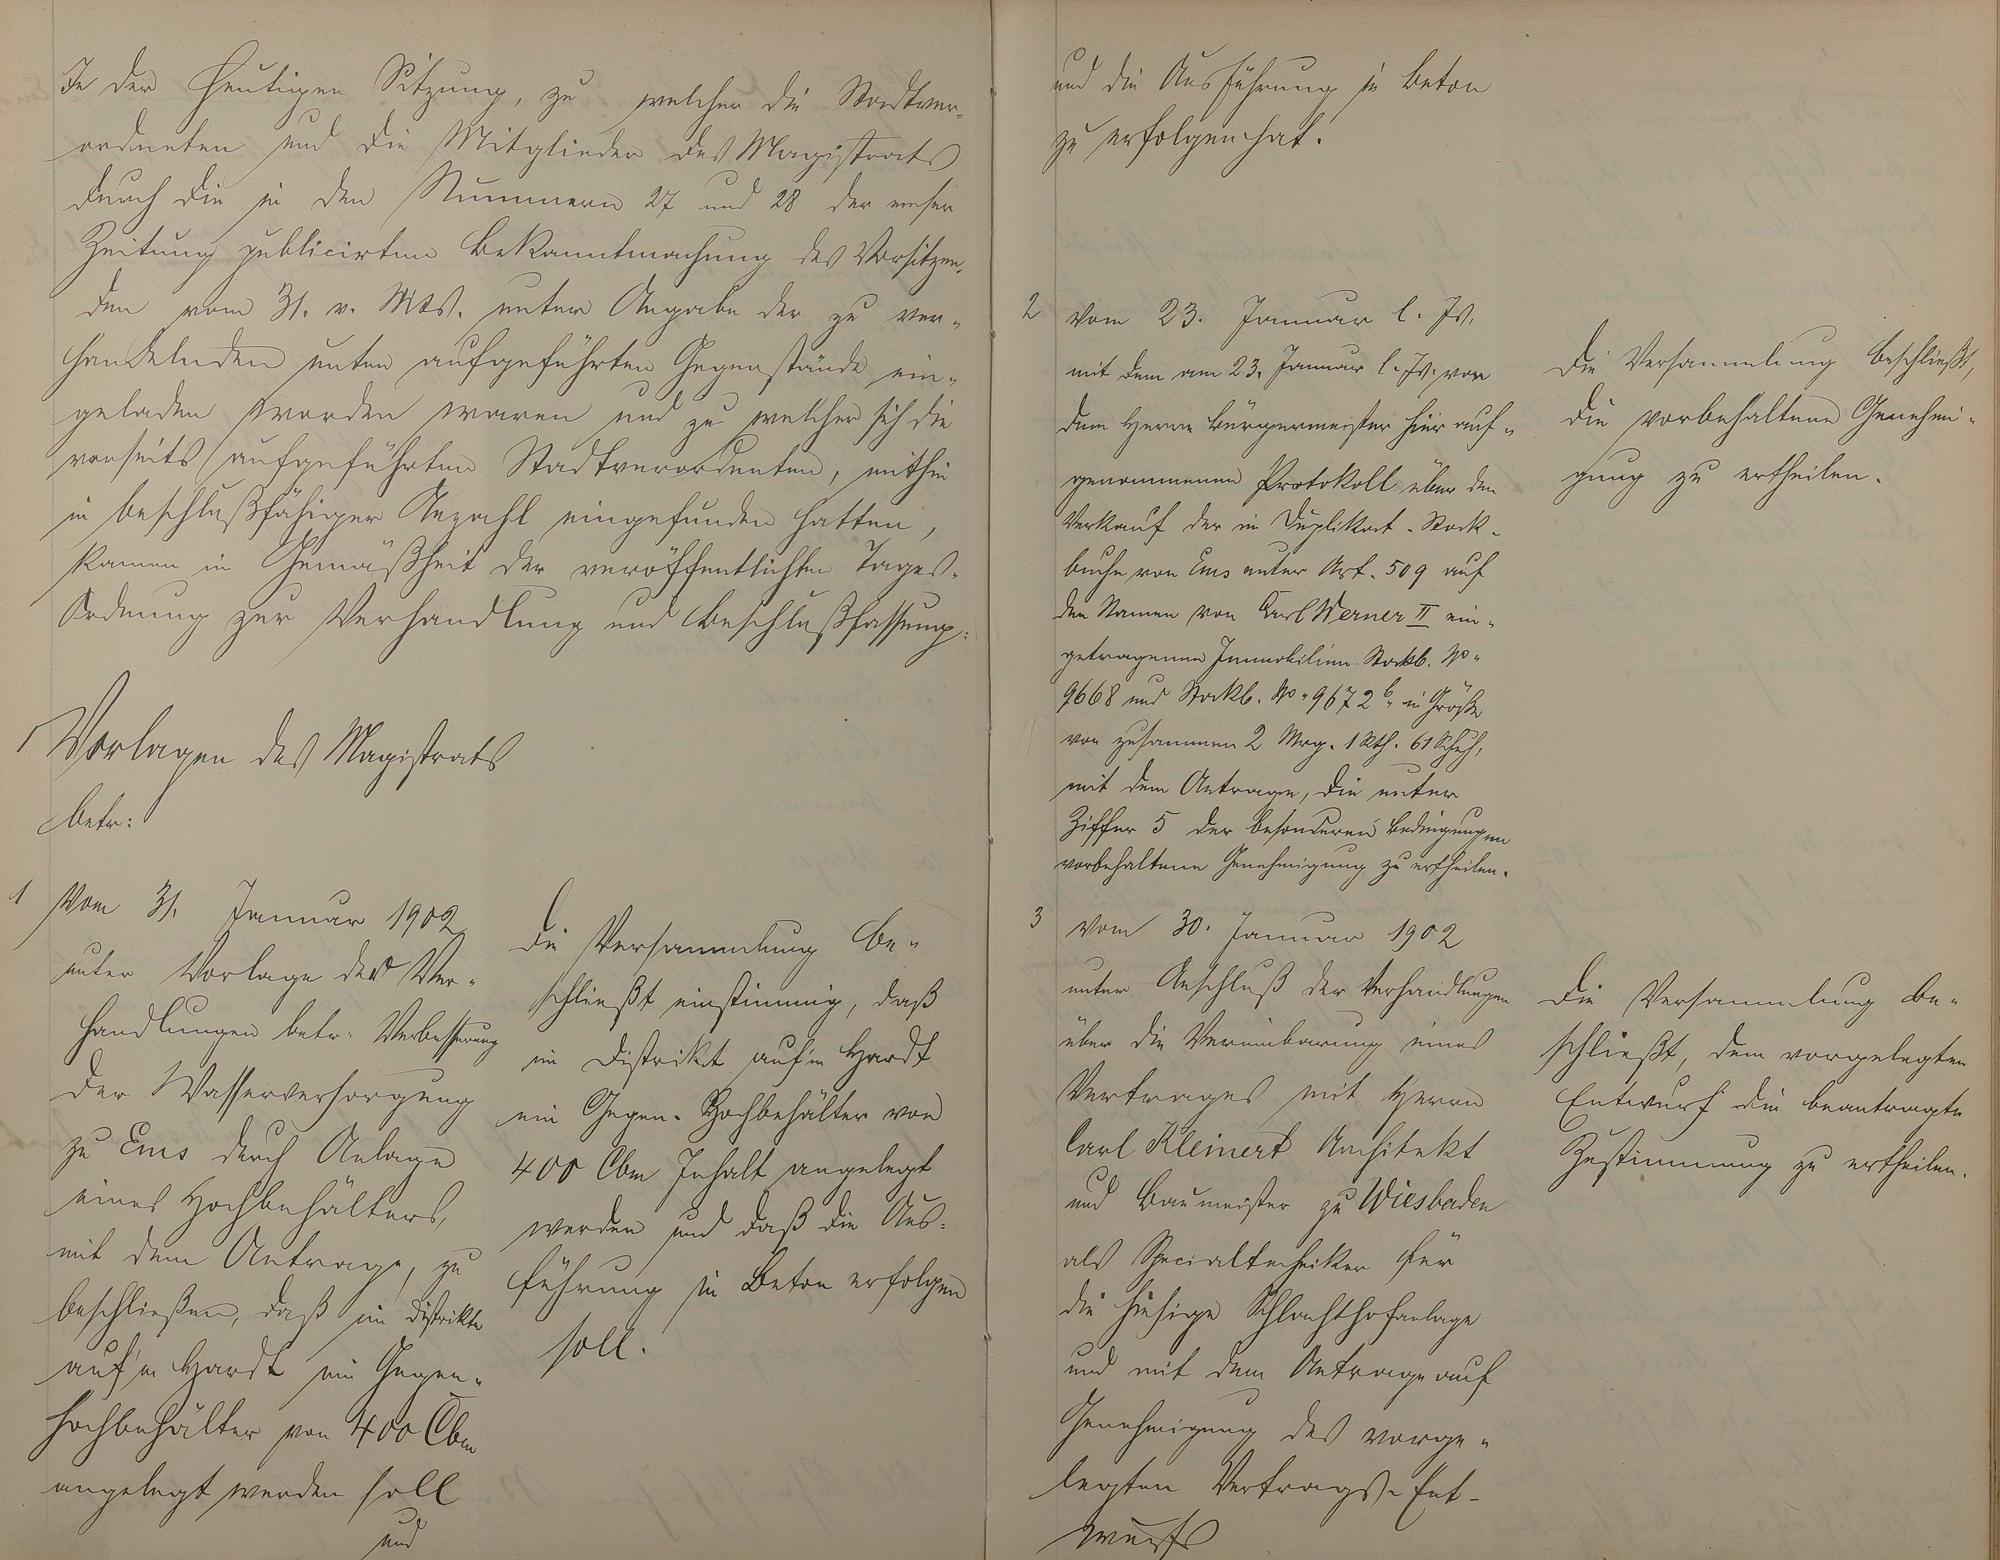 In der heutigen Sitzung, zu welcher die Stadtver-
ordneten und die Mitglieder des Magistrats
durch die in den Nummern 27 und 28 der emser
Zeitung publicirten Bekanntmachung des Vorsitzen-
den vom 31. v. Mts. unter Angabe der zu ver-
handelnden unten aufgeführten Gegenstände ein-
geladen worden waren und zu welcher sich die
vorseits aufgeführten Stadtverordneten, mithin
in beschlußfähiger Anzahl eingefunden hatten,
kamen in Gemäßheit der veröffentlichten Tages-
Ordnung zur Verhandlung und Beschlußfassung:
1 Vorlagen des Magistrats
betr:
1 Vom 31. Januar 1902
unter Vorlage der Ver-
handlungen betr. Verbesserung
der Wasserversorgung
zu Ems durch Anlage
eines Hochbehälters,
mit dem Antrage, zu
beschließen, daß im Distrikte
auf'm Hardt ein Gegen-
hochbehälter von 400 Cbm
angelegt werden soll
und
Die Versammlung be-
schließt einstimmig, daß
im Distrikt auf'm Hardt
ein Gegen-Hochbehälter von
400 Cbm Inhalt angelegt
werden und daß die Aus-
führung in Beton erfolgen
soll.
und die Ausführung in Beton
zu erfolgen hat.
2 Vom 23. Januar l. Js.
mit dem am 23. Januar l. Js. von
dem Herrn Bürgermeister hier auf-
genommenen Protokoll über den
Verkauf der im Duplikat-Stock-
buche von Ems unter Art. 509 auf
den Namen von Carl Werner II ein-
getragenen Immobilien Stockb. No.
9668 und Stockb. No. 9672 b. in Größe
von zusammen 2 Mrg. 1 Rth. 61 Schuh,
mit dem Antrage, die unter
Ziffer 5 der besonderen Bedingungen
vorbehaltene Genehmigung zu ertheilen.
Die Versammlung beschließt,
die vorbehaltene Genehmi-
gung zu ertheilen.
3 Vom 30. Januar 1902
unter Anschluß der Verhandlungen
über die Vereinbarung eines
Vertrages mit Herrn
Carl Kleinert Architekt
und Baumeister zu Wiesbaden
als Specialtechniker für
die hiesige Schlachthofanlage
und mit dem Antrage auf
Genehmigung des vorge-
legten Vertrags-Ent-
wurfs
Die Versammlung be-
schließt, dem vorgelegten
Entwurf die beantragte
Zustimmung zu ertheilen.